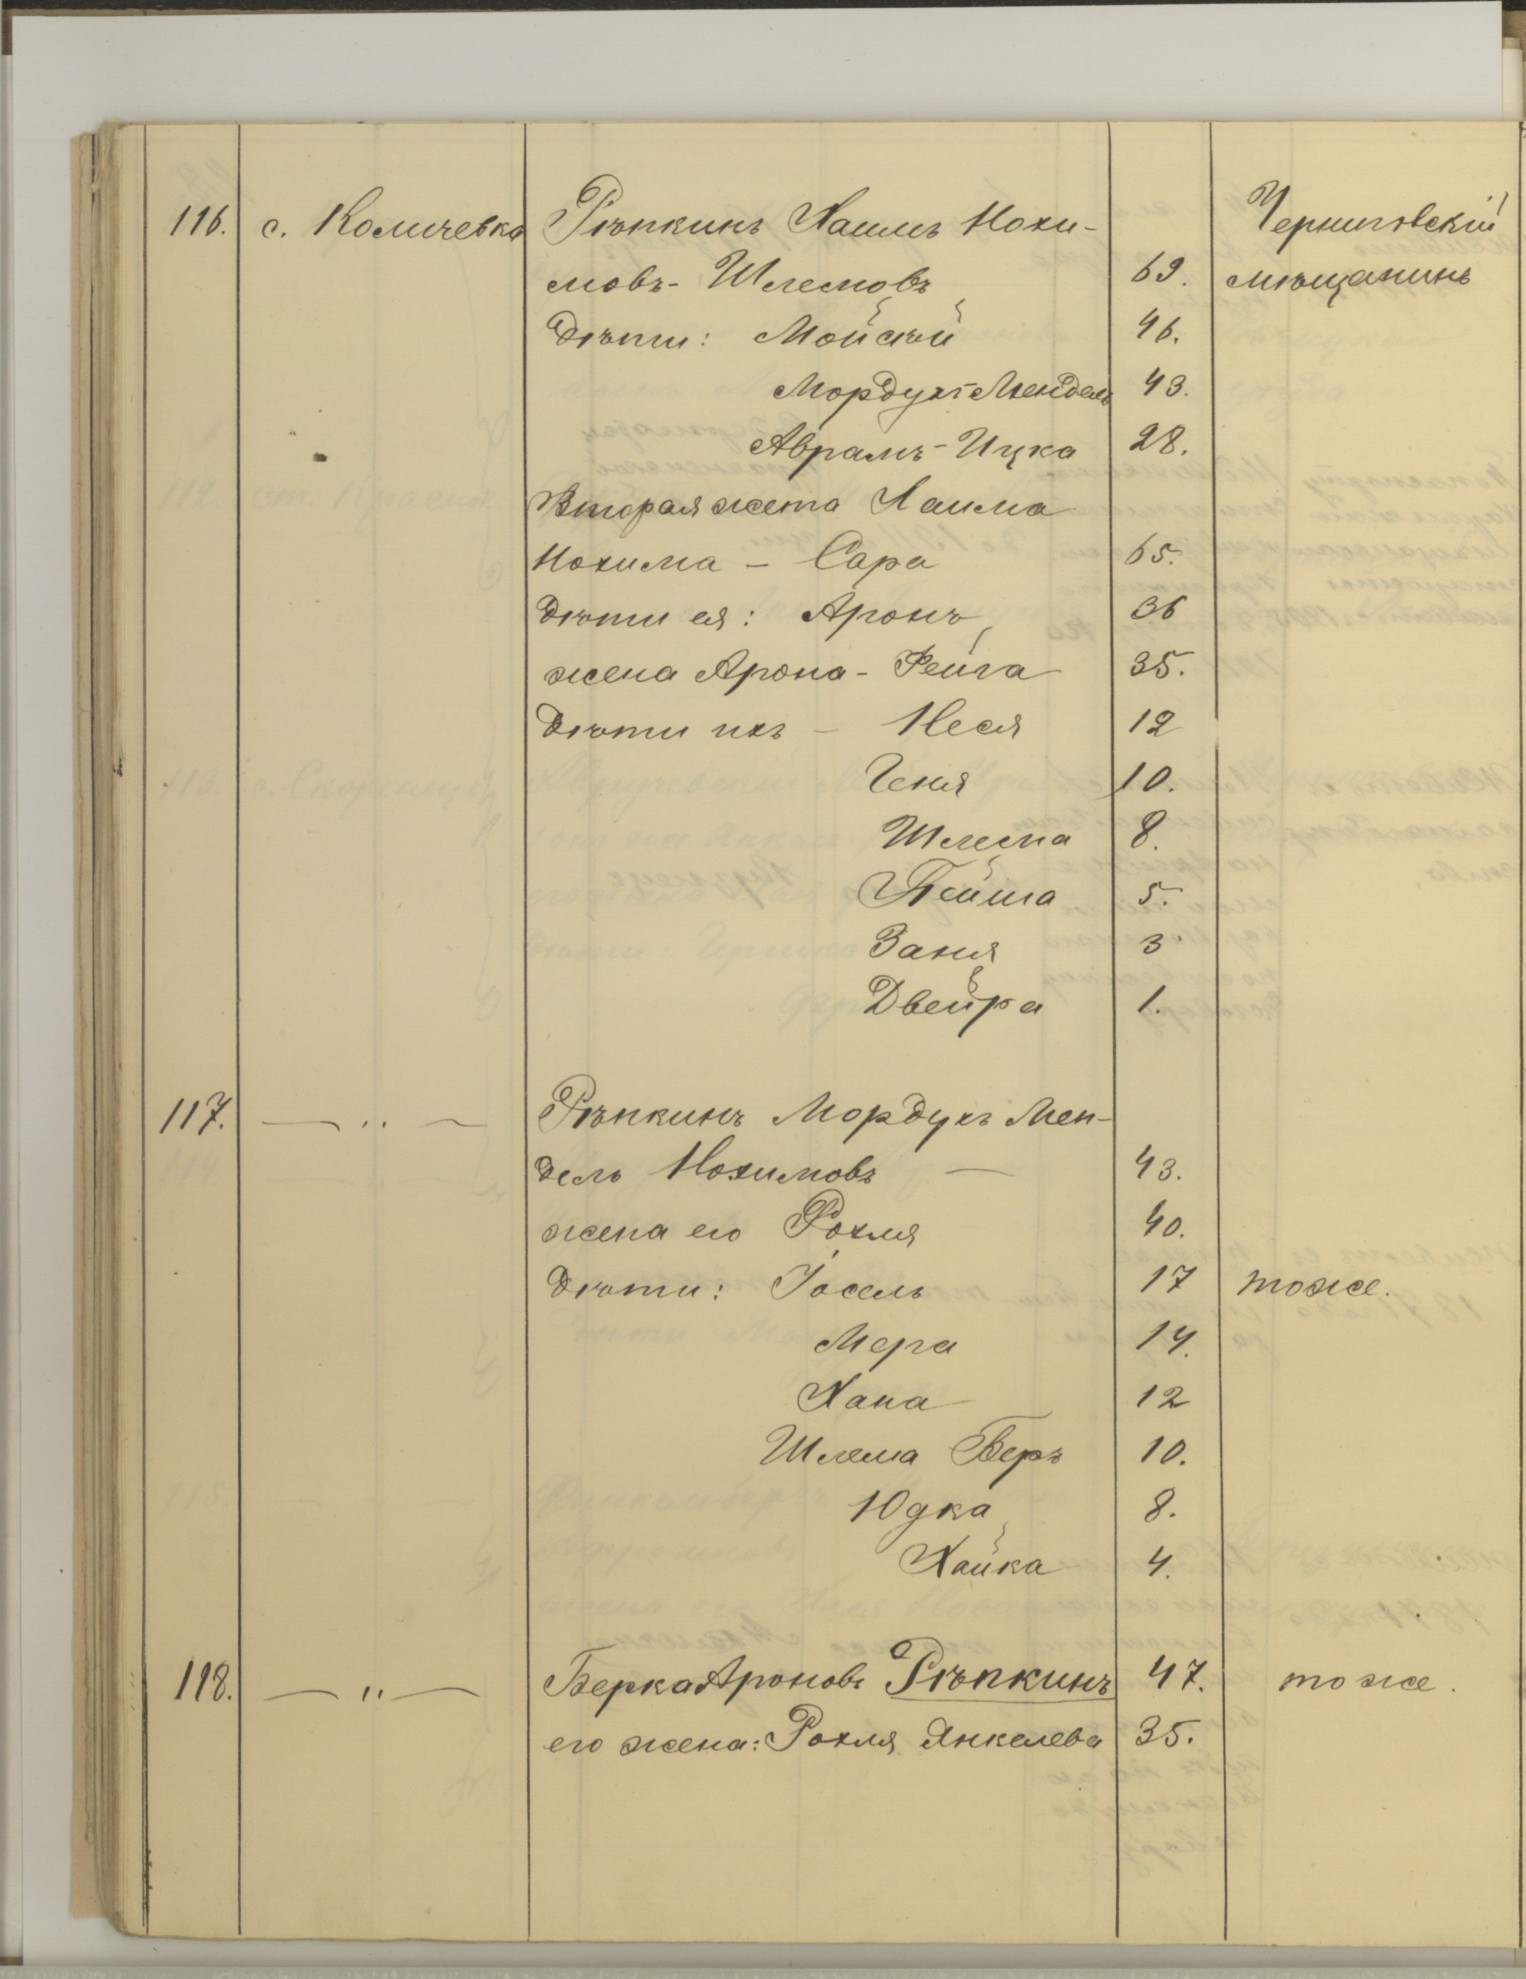 116. с. Количевка Рѣпкинъ Хаимъ Нохи- Черниговскій
мовъ- Шлемовъ 69. мѣщанинъ
дѣти: Мойсѣй 46.
Мордухъ-Мендель 43.
Аврамъ-Ицка 28.
Вторая жена Хаима
Нохима - Сара 65.
дѣти ея: Аронъ 36
жена Арона - Фейга 35.
дѣти ихъ - Неся 12
Геня 10.
Шлема 8.
Пейша 5.
Заня 3
Двейра 1.
117. — " — Рѣпкинъ Мордухъ Мен-
дель Нохимовъ — 43.
жена его Рохля 40.
дѣти: Іосель 17 тоже.
Мера 14.
Хана 12
Шлема Беръ 10.
Юдка 8.
Хайка 4.
118. — " — Берка Ароновъ Рѣпкинъ 47. тоже.
его жена: Рохля Янкелева 35.